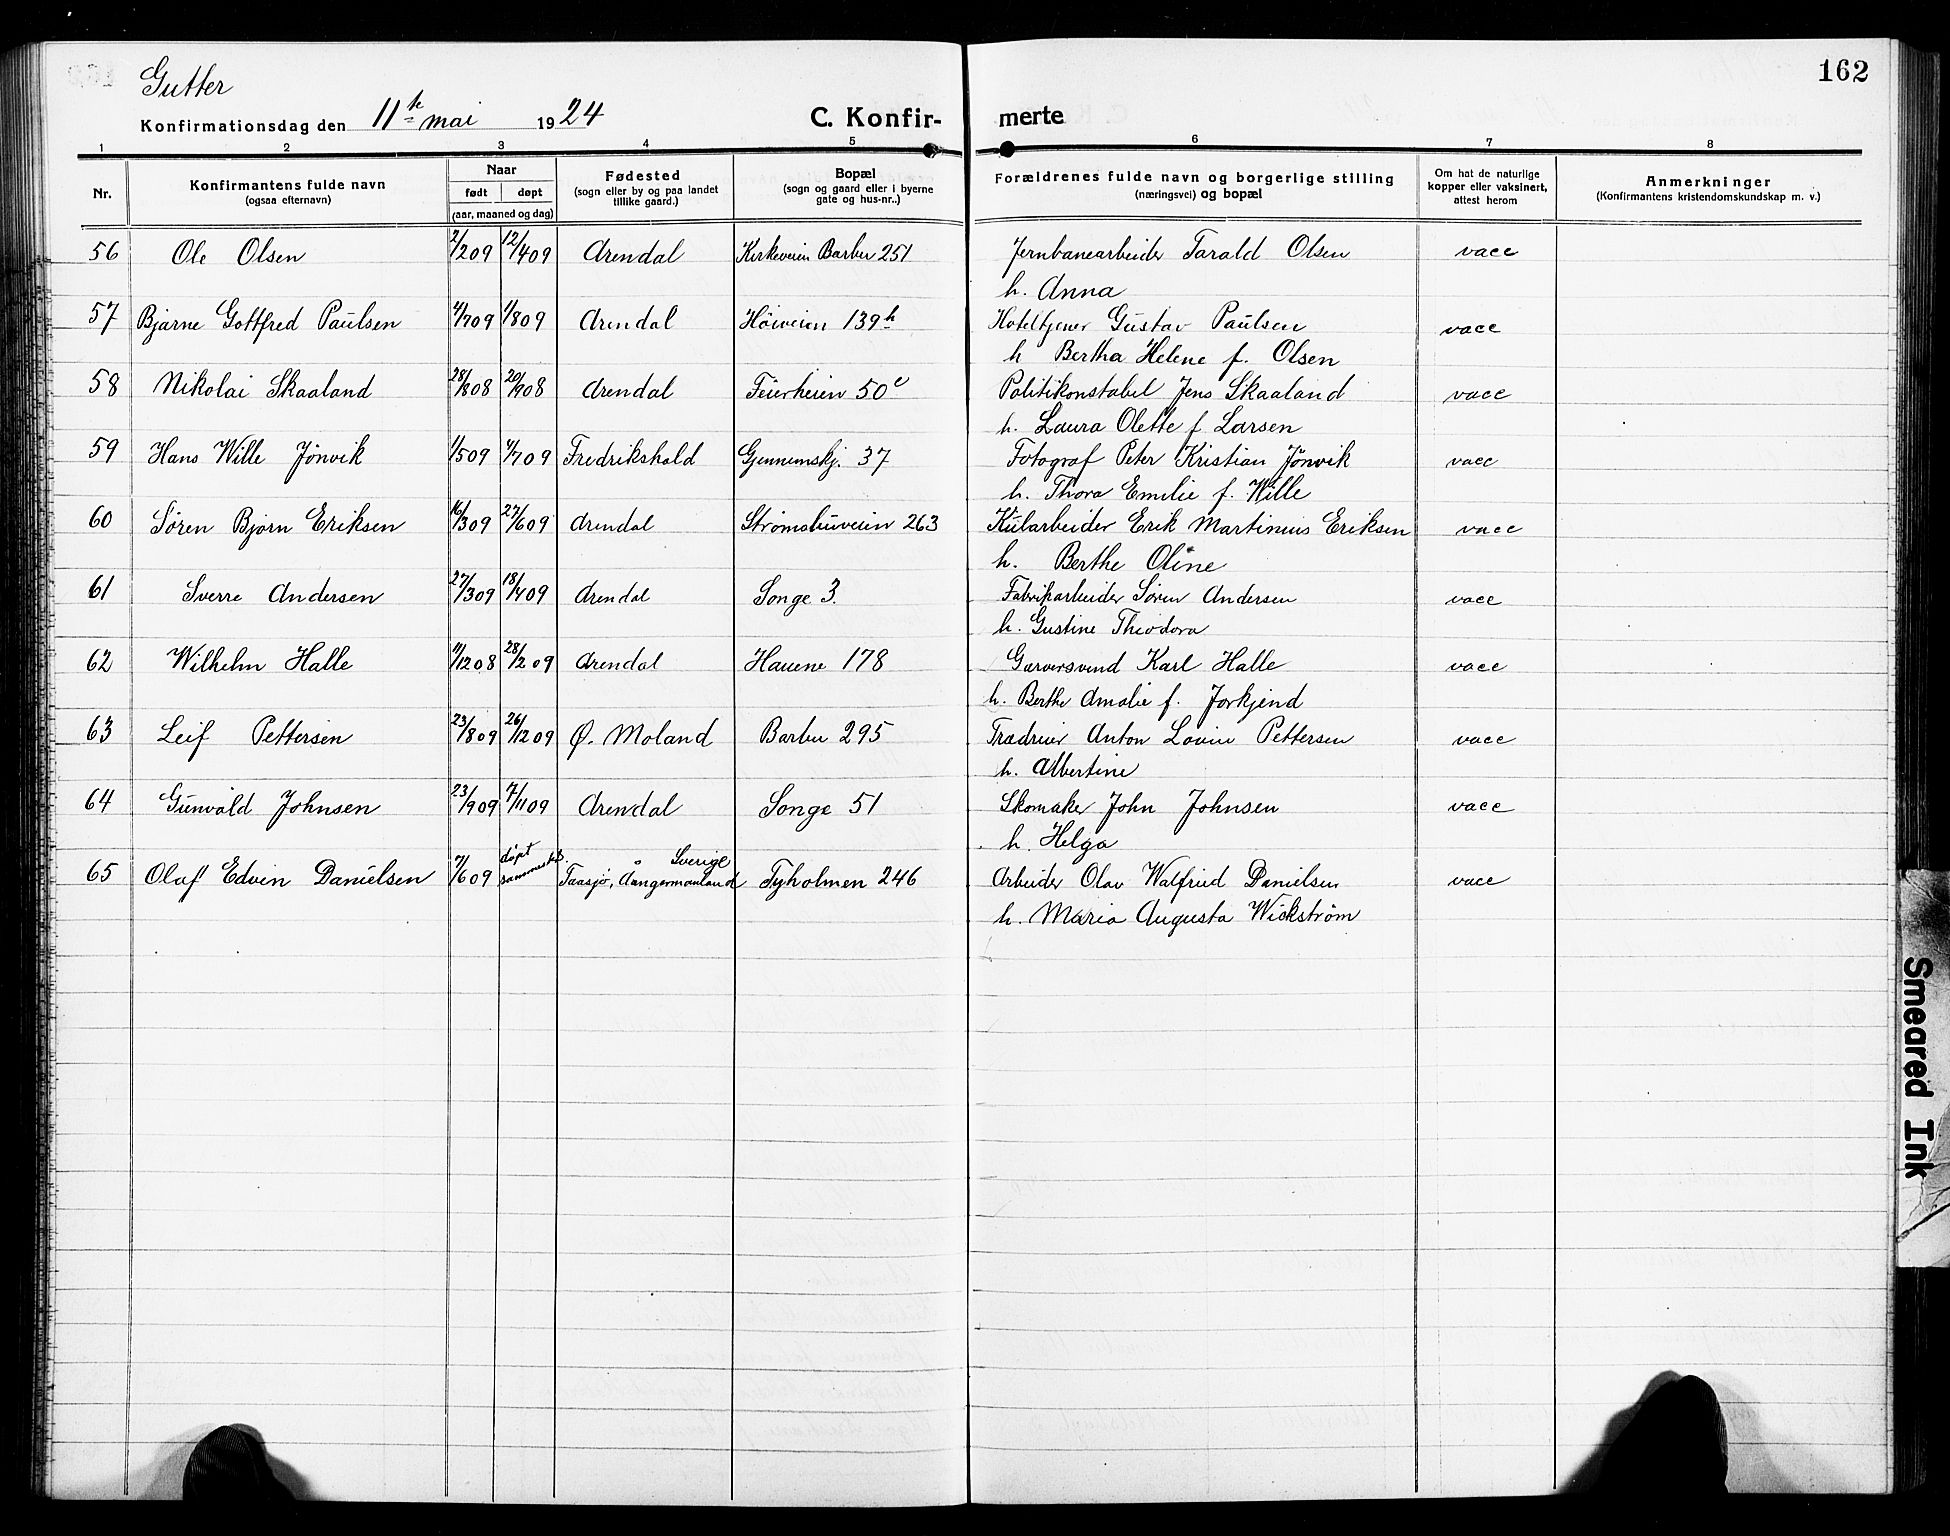 162
Gutter
Konfirmationsdag den 11te mai 1924 C. Konfir- merte
1 2 3 4 5 6 7 8
Nr. Konfirmantens fulde navn (ogsaa efternavn) Naar født døpt (aar, maaned og dag) Fødested (sogn eller by og paa landet tillike gaard.) Bopæl (sogn og gaard eller i byerne gate og hus-nr..) Forældrenes fulde navn og borgerlige stilling (næringsvei) og bopæl Om hat de naturlige kopper eller vaksinert, attest herom Anmerkninger (Konfirmantens kristendomskundskap m. v.)
56 Ole Olsen 2/2 09 12/4 09 Arendal Kirkeveien Barbu 251 Jernbanearbeider Tarald Olsen vacc
h. Anna
57 Bjarne Gottfred Paulsen 4/7 09 1/8 09 Arendal Höiveien 139h Hoteltjener Gustav Paulsen vacc
h Bertha Helene f. Olsen
58 Nikolai Skaaland 28/8 08 20/9 08 Arendal Feierheien 50c Politikonstabel Jens Skaaland vacc
h. Laura Olette f Larsen
59 Hans Wille Jönvik 1/5 09 4/7 09 Fredrikshald Gjennemskj. 37 Fotograf Peter Kristian Jönvik vacc
h. Thora Emilie f. Wille
60 Søren Bjørn Eriksen 16/3 09 27/6 09 Arendal Strømsbuveien 263 Kularbeider Erik Martinius Eriksen vacc
h. Berthe Oline
61 Sverre Andersen 27/3 09 18/4 09 Arendal Songe 3. Fabrikarbeider Søren Andersen vacc
h. Gustine Theodora
62 Wilhelm Halle 11/12 08 28/2 09 Arendal Hauene 178 Garversvend Karl Halle vacc
h. Berthe Amalie f. Jorkjend
63 Leif Pettersen 23/8 09 26/12 09 Ø. Moland Barbu 295 Trædreier Anton Lovin Pettersen vacc
h. Albertine
64 Gunvald Johnsen 23/9 09 7/11 09 Arendal Songe 51 Skomaker John Johnsen vacc
h. Helga
65 Olaf Edvin Danielsen 7/6 09 døpt sammesteds. Taasjø, Ångermanland Sverige Tyholmen 246 Arbeider Olav Walfrid Danielsen vacc
h. Maria Augusta Wickström
Smeared Ink